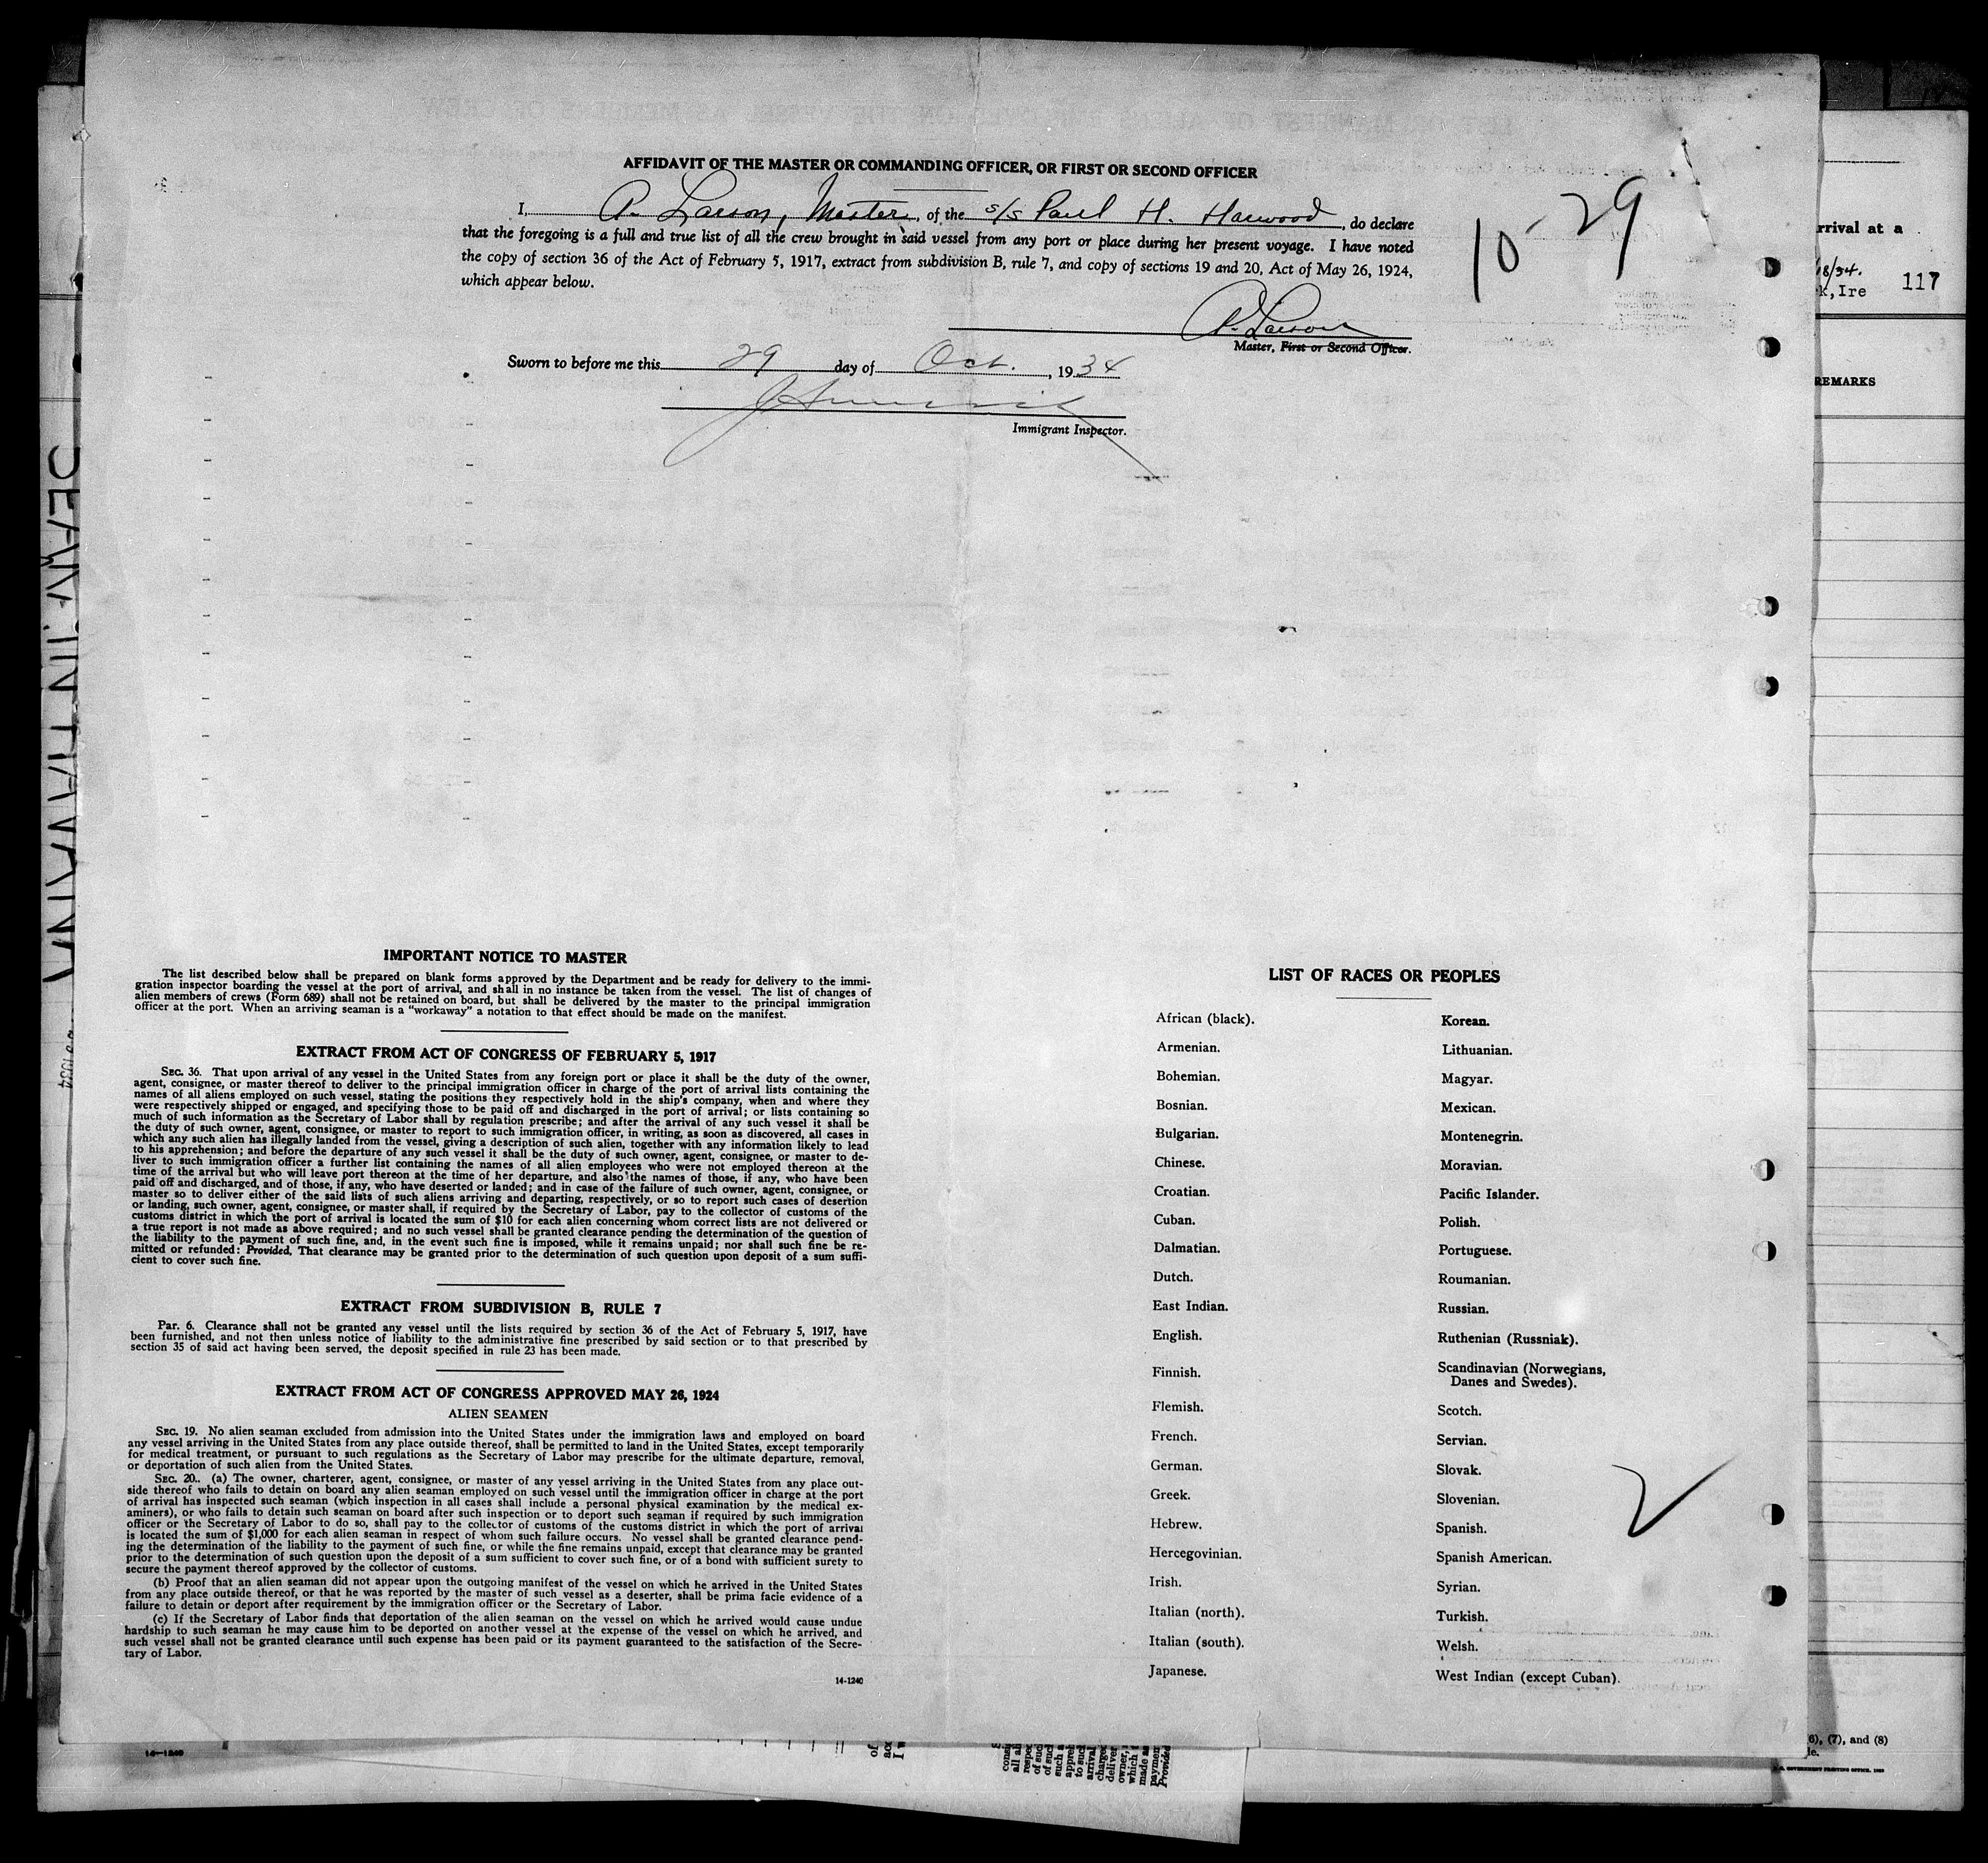 AFFIDAVIT OF THE MASTER OR COMMANDING OFFICER, OR FIRST OR SECOND OFFICER
I, A. Larson, Master, of the s/s Paul H. Harwood, do declare
that the foregoing is a full and true list of all the crew brought in said vessel from any port or place during her present voyage. I have noted
the copy of section 36 of the Act of February 5, 1917, extract from subdivision B, rule 7, and copy of sections 19 and 20, Act of May 26, 1924,
which appear below.
10-29
A. Larson
Master, First or Second Officer.
Sworn to before me this 29 day of Oct., 1934
Immigrant Inspector.
rrival at a
18/34.
k, Ire 117
REMARKS
IMPORTANT NOTICE TO MASTER
The list described below shall be prepared on blank forms approved by the Department and be ready for delivery to the immi-
gration inspector boarding the vessel at the port of arrival, and shall in no instance be taken from the vessel. The list of changes of
alien members of crews (Form 689) shall not be retained on board, but shall be delivered by the master to the principal immigration
officer at the port. When an arriving seaman is a "workaway" a notation to that effect should be made on the manifest.
EXTRACT FROM ACT OF CONGRESS OF FEBRUARY 5, 1917
SEC. 36. That upon arrival of any vessel in the United States from any foreign port or place it shall be the duty of the owner,
agent, consignee, or master thereof to deliver to the principal immigration officer in charge of the port of arrival lists containing the
names of all aliens employed on such vessel, stating the positions they respectively hold in the ship's company, when and where they
were respectively shipped or engaged, and specifying those to be paid off and discharged in the port of arrival; or lists containing so
much of such information as the Secretary of Labor shall by regulation prescribe; and after the arrival of any such vessel it shall be
the duty of such owner, agent, consignee, or master to report to such immigration officer, in writing, as soon as discovered, all cases in
which any such alien has illegally landed from the vessel, giving a description of such alien, together with any information likely to lead
to his apprehension; and before the departure of any such vessel it shall be the duty of such owner, agent, consignee, or master to de-
liver to such immigration officer a further list containing the names of all alien employees who were not employed thereon at the
time of the arrival but who will leave port thereon at the time of her departure, and also the names of those, if any, who have been
paid off and discharged, and of those, if any, who have deserted or landed; and in case of the failure of such owner, agent, consignee, or
master so to deliver either of the said lists of such aliens arriving and departing, respectively, or so to report such cases of desertion
or landing, such owner, agent, consignee, or master shall, if required by the Secretary of Labor, pay to the collector of customs of the
customs district in which the port of arrival is located the sum of $10 for each alien concerning whom correct lists are not delivered or
a true report is not made as above required; and no such vessel shall be granted clearance pending the determination of the question of
the liability to the payment of such fine, and, in the event such fine is imposed, while it remains unpaid; nor shall such fine be re-
mitted or refunded: Provided, That clearance may be granted prior to the determination of such question upon deposit of a sum suffi-
cient to cover such fine.
EXTRACT FROM SUBDIVISION B, RULE 7
Par. 6. Clearance shall not be granted any vessel until the lists required by section 36 of the Act of February 5, 1917, have
been furnished, and not then unless notice of liability to the administrative fine prescribed by said section or to that prescribed by
section 35 of said act having been served, the deposit specified in rule 23 has been made.
EXTRACT FROM ACT OF CONGRESS APPROVED MAY 26, 1924
ALIEN SEAMEN
SEC. 19. No alien seaman excluded from admission into the United States under the immigration laws and employed on board
any vessel arriving in the United States from any place outside thereof, shall be permitted to land in the United States, except temporarily
for medical treatment, or pursuant to such regulations as the Secretary of Labor may prescribe for the ultimate departure, removal,
or deportation of such alien from the United States.
SEC. 20. (a) The owner, charterer, agent, consignee, or master of any vessel arriving in the United States from any place out-
side thereof who fails to detain on board any alien seaman employed on such vessel until the immigration officer in charge at the port
of arrival has inspected such seaman (which inspection in all cases shall include a personal physical examination by the medical ex-
aminers), or who fails to detain such seaman on board after such inspection or to deport such seaman if required by such immigration
officer or the Secretary of Labor to do so, shall pay to the collector of customs of the customs district in which the port of arrival
is located the sum of $1,000 for each alien seaman in respect of whom such failure occurs. No vessel shall be granted clearance pend-
ing the determination of the liability to the payment of such fine, or while the fine remains unpaid, except that clearance may be granted
prior to the determination of such question upon the deposit of a sum sufficient to cover such fine, or of a bond with sufficient surety to
secure the payment thereof approved by the collector of customs.
(b) Proof that an alien seaman did not appear upon the outgoing manifest of the vessel on which he arrived in the United States
from any place outside thereof, or that he was reported by the master of such vessel as a deserter, shall be prima facie evidence of a
failure to detain or deport after requirement by the immigration officer or the Secretary of Labor.
(c) If the Secretary of Labor finds that deportation of the alien seaman on the vessel on which he arrived would cause undue
hardship to such seaman he may cause him to be deported on another vessel at the expense of the vessel on which he arrived, and
such vessel shall not be granted clearance until such expense has been paid or its payment guaranteed to the satisfaction of the Secre-
tary of Labor.
14-1240
LIST OF RACES OR PEOPLES
African (black).
Armenian.
Bohemian.
Bosnian.
Bulgarian.
Chinese.
Croatian.
Cuban.
Dalmatian.
Dutch.
East Indian.
English.
Finnish.
Flemish.
French.
German.
Greek.
Hebrew.
Hercegovinian.
Irish.
Italian (north).
Italian (south).
Japanese.
Korean.
Lithuanian.
Magyar.
Mexican.
Montenegrin.
Moravian.
Pacific Islander.
Polish.
Portuguese.
Roumanian.
Russian.
Ruthenian (Russniak).
Scandinavian (Norwegians,
Danes and Swedes).
Scotch.
Servian.
Slovak.
Slovenian.
Spanish.
Spanish American.
Syrian.
Turkish.
Welsh.
West Indian (except Cuban).
14-1240
6), (7), and (8)